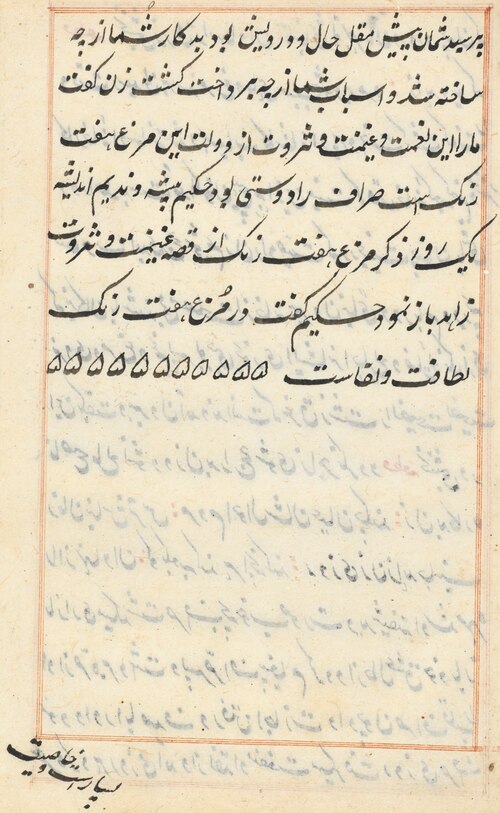 پرسید شمان پیش مقل حال و درویش بودید کار شما از چه
ساخته شد و اسباب شما از چه پرداخت گشت زن گفت
ما را این نعمت و غنیمت و ثروت از دولت این مرغ هفت
رنگ است صراف را دوستی بود حکیم پیشه و ندیم اندیشه
یک روز ذکر مرغ هفت رنگ از قصه غنیمت و ثروت
زاهد باز نمود حکیم گفت در مرغ هفت رنگ
لطافت و نفاست ۵۵۵۵۵۵۵۵۵۵۵
بسیار است و خاصیت